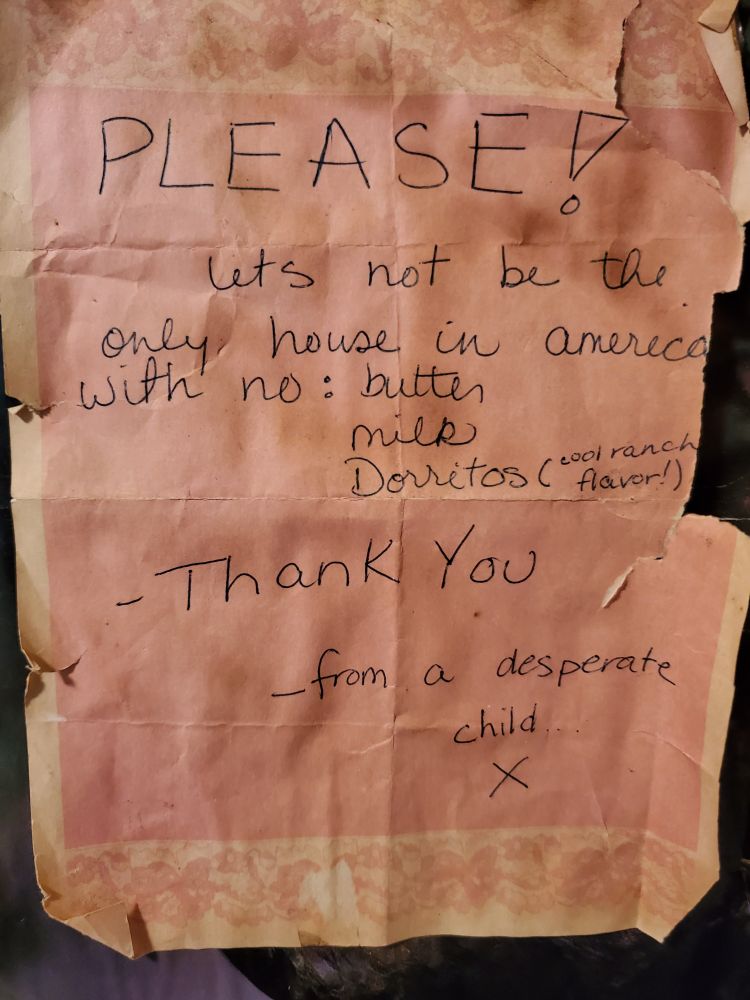 PLEASE!
lets not be the
only house in america
with no: butter
milk
Dorritos (cool ranch
flavor!)
- Thank You
- from a desperate
child...
X